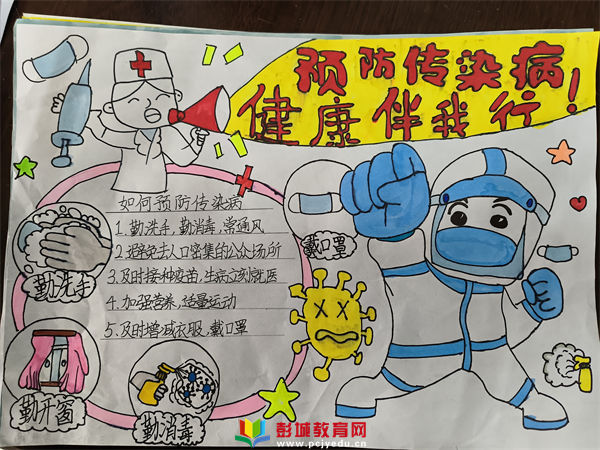 预防传染病
健康伴我行!
如何预防传染病
1.勤洗手,勤消毒,常通风
2.避免去人口密集的公众场所
3.及时接种疫苗,生病立刻就医
4.加强营养,适量运动
5.及时增减衣服,戴口罩
戴口罩
勤洗手
勤开窗
勤消毒
彭城教育网
www.pcjyedu.cn